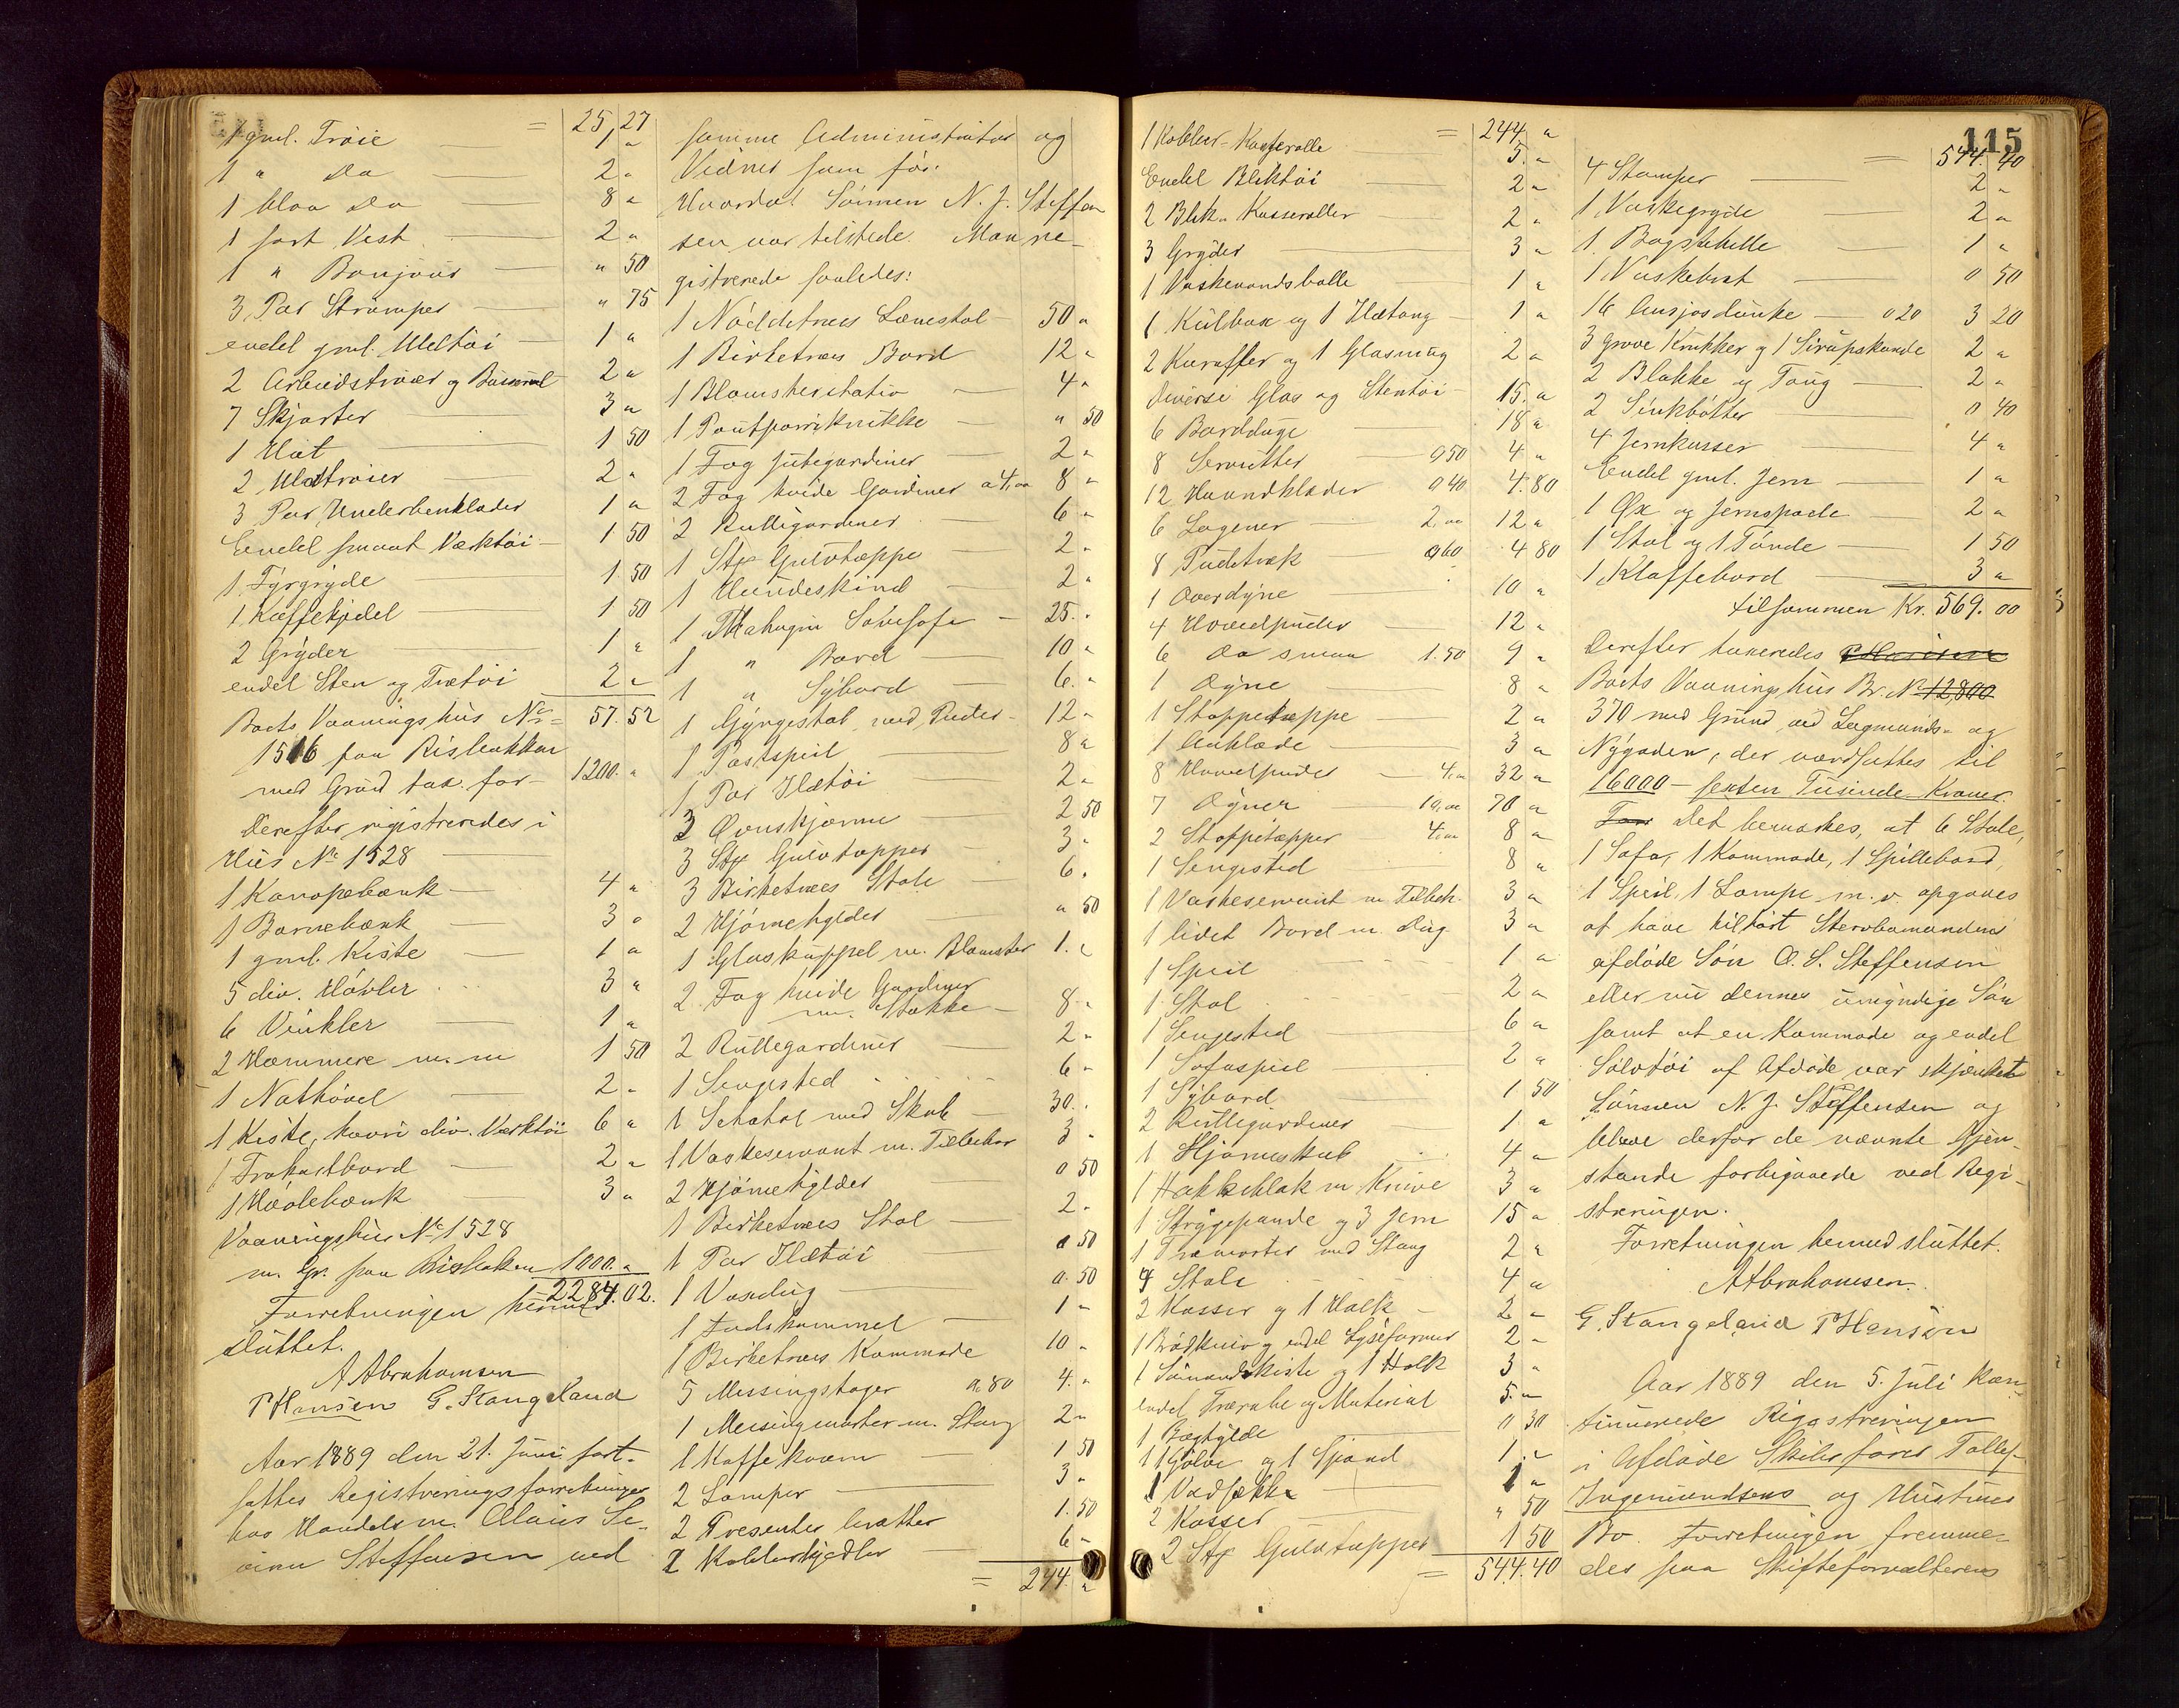 = 25,27
1 gml. Trøie — 1 "
1 " Do — 2 "
1 blaa Do — 8 "
1 sort Vest — 2 "
1 " Bonjour — " 50
3 Par Strømper — " 75
endel gml. Uldtøi — 1 "
2 Arbeidstrøier og — 2 "
7 Skjorter — 3 "
1 Hat — 1 50
2 Uldtrøier — 2 "
3 Par Underbenklæder — 1 "
Endel smaat Værktøi — 1 50
1 Tyrgryde — 1.50
1 Kaffekjedel — 1 50
2 Gryder — 1 "
endel Sten og Trætøi — 2 "
Boets Vaaningshus No = 57.52
1516 paa Risbakken
med Grund tax. for — 1200. "
Derefter registreredes i
Hus No 1528 —
1 Kanapebænk — 4 "
1 Barnebænk — 3 "
1 gml. Kiste — 1 "
5 div. Høvler — 3 "
6 Vinkler — 1 "
2 Hammere m. m — 1 50
1 Nathøvel — 2 "
1 Kiste, hvori div. Værktøi 6 "
1 Frokostbord — 2 "
1 Høvlebænk — 3 "
Vaaningshus No 1528
m. Gr. paa Risbakken 1000. "
2284.02.
Forretningen hermed
sluttet.
A Abrahamsen
P Hansen G. Stangeland
Aar 1889 den 21. Juni fort-
sattes Registreringsforretningen
hos Handelsm. Olaus Se-
verin Steffensen ved
samme Administrator og
Vidner som før.
Hvordat Sønnen N. J. Steffen
sen var tilstede. Man re-
gistrerede saaledes:
1 Nøddetræes Lænestol — 50 "
1 Birketræes Bord — 12 "
1 Blomsterstativ — 4 "
1 Pontpourikrukke — " 50
1 Fag Jutegardiner — 2 "
2 Fag hvide Gardiner a 4,00 8 "
2 Rullegardiner — 6 "
1 Stk Gulvtæppe — 2 "
1 Hundeskind — 2 "
1 Mahogni Sovesofa — 25. "
1 " Bord — 10 "
1 " Sybord — 6. "
1 Gyngestol med Puder — 12 "
1 Postspeil — 8 "
1 Par Ildtøi — 2 "
2 Ovnskjærme — 2 50
3 Stk Gulvtæpper — 3 "
3 Birketræes Stole — 6 "
2 Hjørnehylder — " 50
1 Glaskuppel m. Blomster 1. "
2 Fag hvide Gardiner
m. Stokke — 8 "
2 Rullegardiner — 2 "
1 Sengested — 6 "
1 Schatol med Skab — 30. "
1 Vaskeservant m. Tilbehør 3 "
2 Hjørnehylder — 0 50
1 Birketræes Stol — 2 "
1 Par Ildtøi — 0 50
1 Voxdug — 0. 50
1 Fodskammel — 1 "
1 Birketræes Kommode 10 "
5 Messingstager 0.80 4. "
1 Messingmorter m. Stang 2 "
1 Kaffekværn — 1 50
2 Lamper — 3 "
2 Presenter bratter 1.50
2 Kobberkjedler — 6 "
= 244. "
115
= 244 "
1 Kobber-Kasserolle — 5. "
Endel Bliktøi — 2 "
2 Blik-Kasseroller — 2 "
3 Gryder — 3 "
1 Vaskevandsballe — 1 "
1 Kulbox og 1 Ildtang — 1 "
2 Karafler og 1 Glasmug 2 "
diverse Glas og Stentøi — 15. "
6 Bordduge — 18 "
8 Servietter — 0 50 4 "
12 Haandklæder 0 40 4.80
6 Lagener — 2,00 12 "
8 Pudetræk — 0 60 4 80
1 Overdyne — 10 "
4 Hovedpuder — 12 "
6 Do smaa 1.50 9 "
1 Dyne — 8 "
1 Stoppetæppe — 2 "
1 Aaklæde — 3 "
8 Hovedpuder — 4,00 32 "
7 Dyner — 10,00 70 "
2 Stoppetæpper 4,00 8 "
1 Sengested — 8 "
1 Vaskeservant m Tilbeh. 3 "
1 lidet Bord m. Dug 3 "
1 Speil — 1 "
1 Stol — 2 "
1 Sengested — 6 "
1 Sofaspeil — 2 "
1 Sybord — 1 50
2 Rullegardiner — 1 "
1 Hjørneskab — 4 "
1 Hakkeblak m Knive 3 "
1 Strygepande og 3 Jern 15 "
1 Træmorter med Stang 2 "
4 Stole — 4 "
2 Kasser og 1 Halk — 2 "
1 Brødkniv og endel Lyseformer 2 "
1 Sømandskiste og 1 Holk 3 "
endel Trærabe og Material 5. "
1 Baghylde — 0 30
1 Gølve og 1 Spand 1. "
1 Vadsække — 1 "
2 Kasser — " 50
2 Stk Gulvtæpper — 1 50
= 544.40
= 544. 40
4 Stamper — 2 "
1 Vaskegryde — 2 "
1 Bagstehelle — 1 "
1 Vaskebret — 0 50
16 Ansjosdunke — 0 20 3 20
3 grove Krukker og 1 Sirupskande 2 "
2 Blokke og Toug — 2 "
2 Sinkbøtter — 0 40
4 Jernkasser — 4 "
Endel gml. Jern — 1 "
1 Øx og Jernspade — 2 "
1 Stol og 1 Tønde — 1 50
1 Klaffebord — 3 "
tilsammen Kr. 569. 00
Derefter taxeredes
Boets Vaaningshus Br. No 12,800
370 med Grund ved Lagmands- og
Nygaden, der værdsattes til
16000 — sexten Tusinde Kroner.
Det bemærkes, at 6 Stole,
1 Sofa, 1 Kommode, 1 Spillebord,
1 Speil, 1 Lampe m. v. opgaves
at have tilhørt Stervbomandens
afdøde Søn O. S. Steffensen
eller nu dennes umyndige Søn
samt at en Kommode og endel
Sølvtøi af Afdøde var skjænket
Sønnen N. J. Steffensen og
bleve derfor de nævnte Gjen-
stande forbigaaede ved Regi-
streringen.
Forretningen hermed sluttet.
A Abrahamsen.
G. Stangeland P Hansen
Aar 1889 den 5. Juli kon-
tinuerede Registreringen
i Afdøde Skibsfører Tollef
Ingemundsens og Hustrues
Bo. Forretningen fremme-
des paa Skifteforvalterens